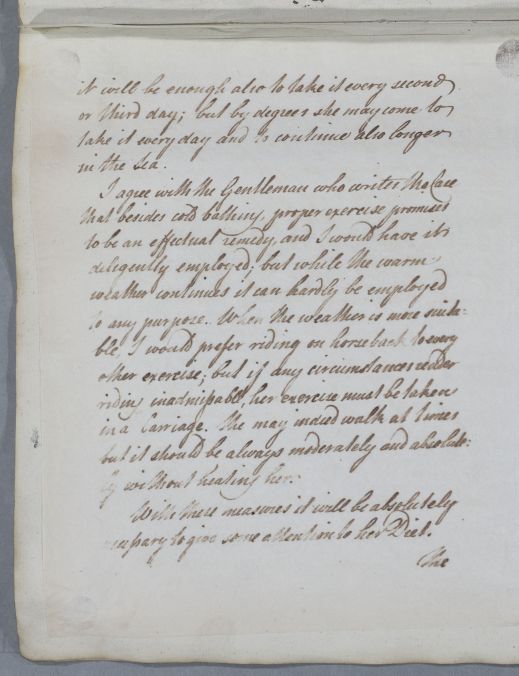 it will be enough also to take it every second
or third day; but by degrees she may come to
take it every day and to continue also longer
in the Sea.
I agree with the Gentleman who writes the Case
that besides cold bathing, proper exercise promises
to be an effectual remedy, and I would have it
deligently employed; but while the warm
weather continues it can hardly be employed
to any purpose. When the weather is more suita=
ble, I would prefer riding on horseback to every
other exercise; but if any circumstances render
riding inadmissable, her exercise must be taken
in a Carriage. She may indeed walk at times
but it should be always moderately and absolute=
ly without heating her.
With these measures it will be absolutely
necessary to give some attention to her Diet.
The